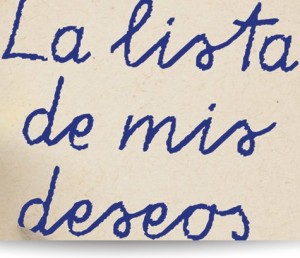 La lista
de mis
deseos